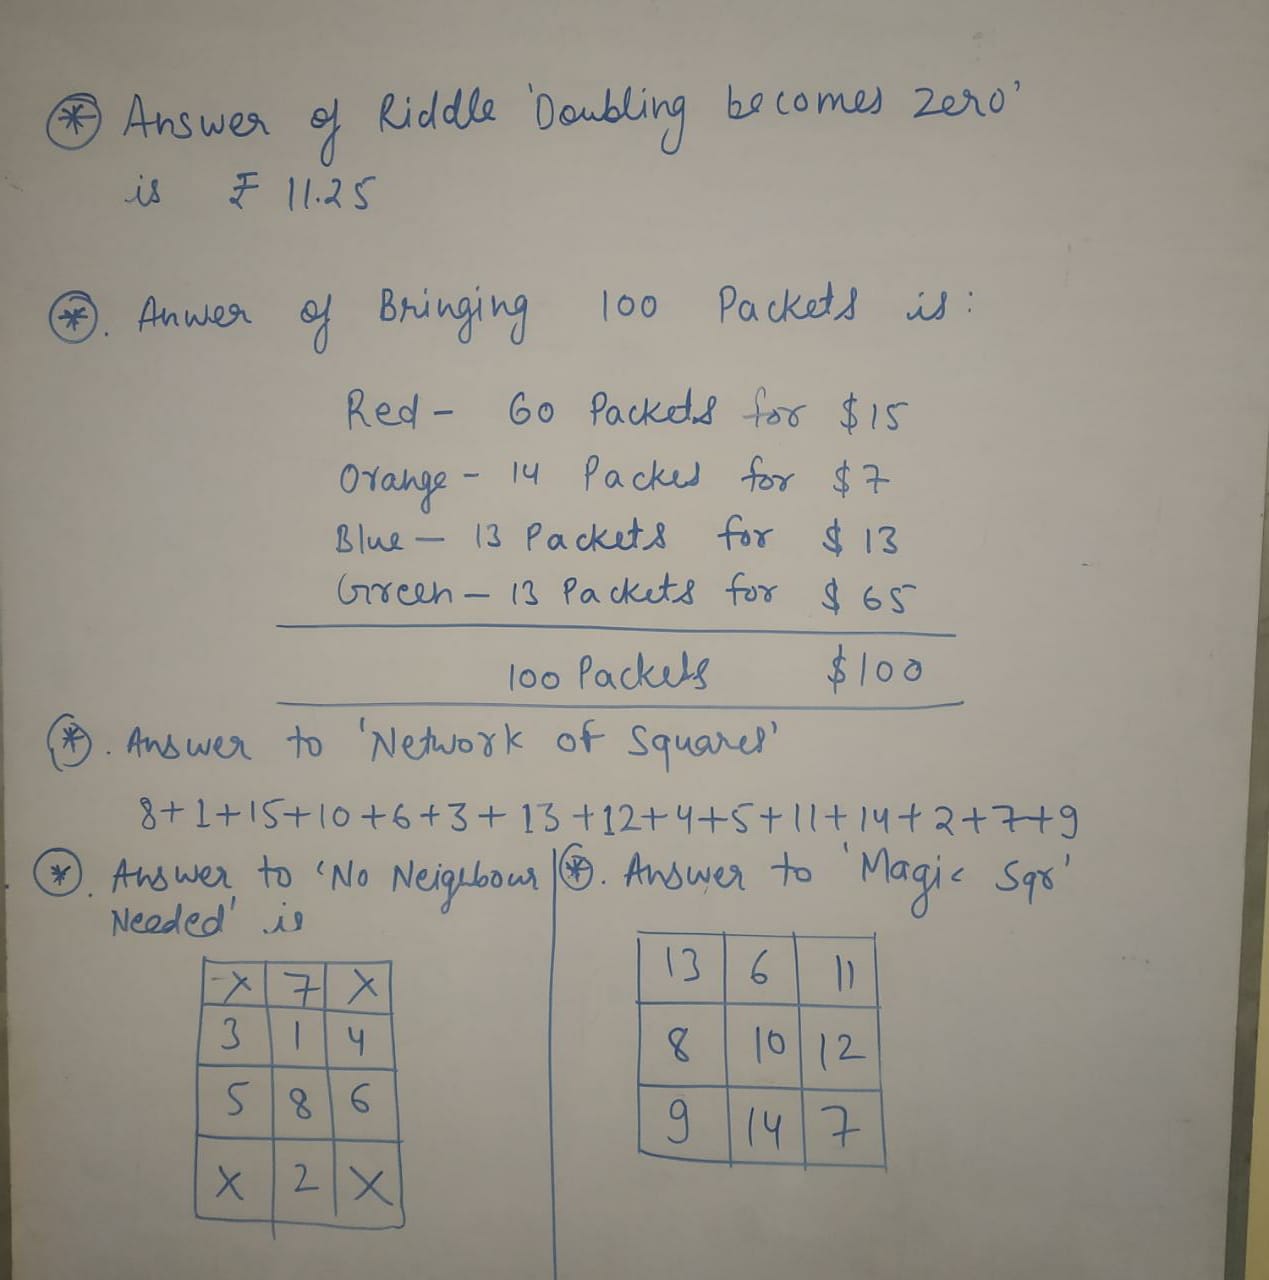 * Answer of Riddle 'Doubling becomes zero'
is ₹ 11.25
*. Anwer of Bringing 100 Packets is:
Red - 60 Packets for $15
Orange - 14 Packed for $7
Blue - 13 Packets for $13
Green - 13 Packets for $65
100 Packets $100
*. Answer to 'Network of Squares'
8+1+15+10+6+3+13+12+4+5+11+14+2+7+9
*. Answer to 'No Neighbour
Needed' is
X 7 X
3 1 4
5 8 6
X 2 X
*. Answer to 'Magic Sqr'
13 6 11
8 10 12
9 14 7